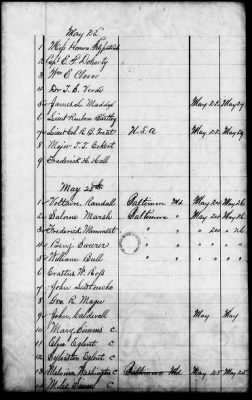 May 22
1 Miss Honora Fitzpatrick
2 Capt E. P. Doherty
3 Wm E. Clever
4 Dr T. S. Verdi
5 James L. Maddox May 22 May
6 Lieut Reuben Bartley
7 Lieut Col R. B. Treat U.S.A May 22 May
8 Major T. T. Eckert
9 Frederick H. Hall
May 25th
1 Voltaire Randall Baltimore Md May 24 May 26
2 Salome Marsh Baltimore " May 24 May 26
3 Frederick Memmert " " " 24 " 26
4 Benj Swearer " "
5 William Bull " "
6 Erastus W. Ross
7 John
8 Geo R. Magee
9 John Caldwell May May
10 Mary Simms C
11 Elzee Eglent C
12 Sylvester Eglent C
13 Melvina Washington C Baltimore Md May 25 May 25
14 Milo Simms C